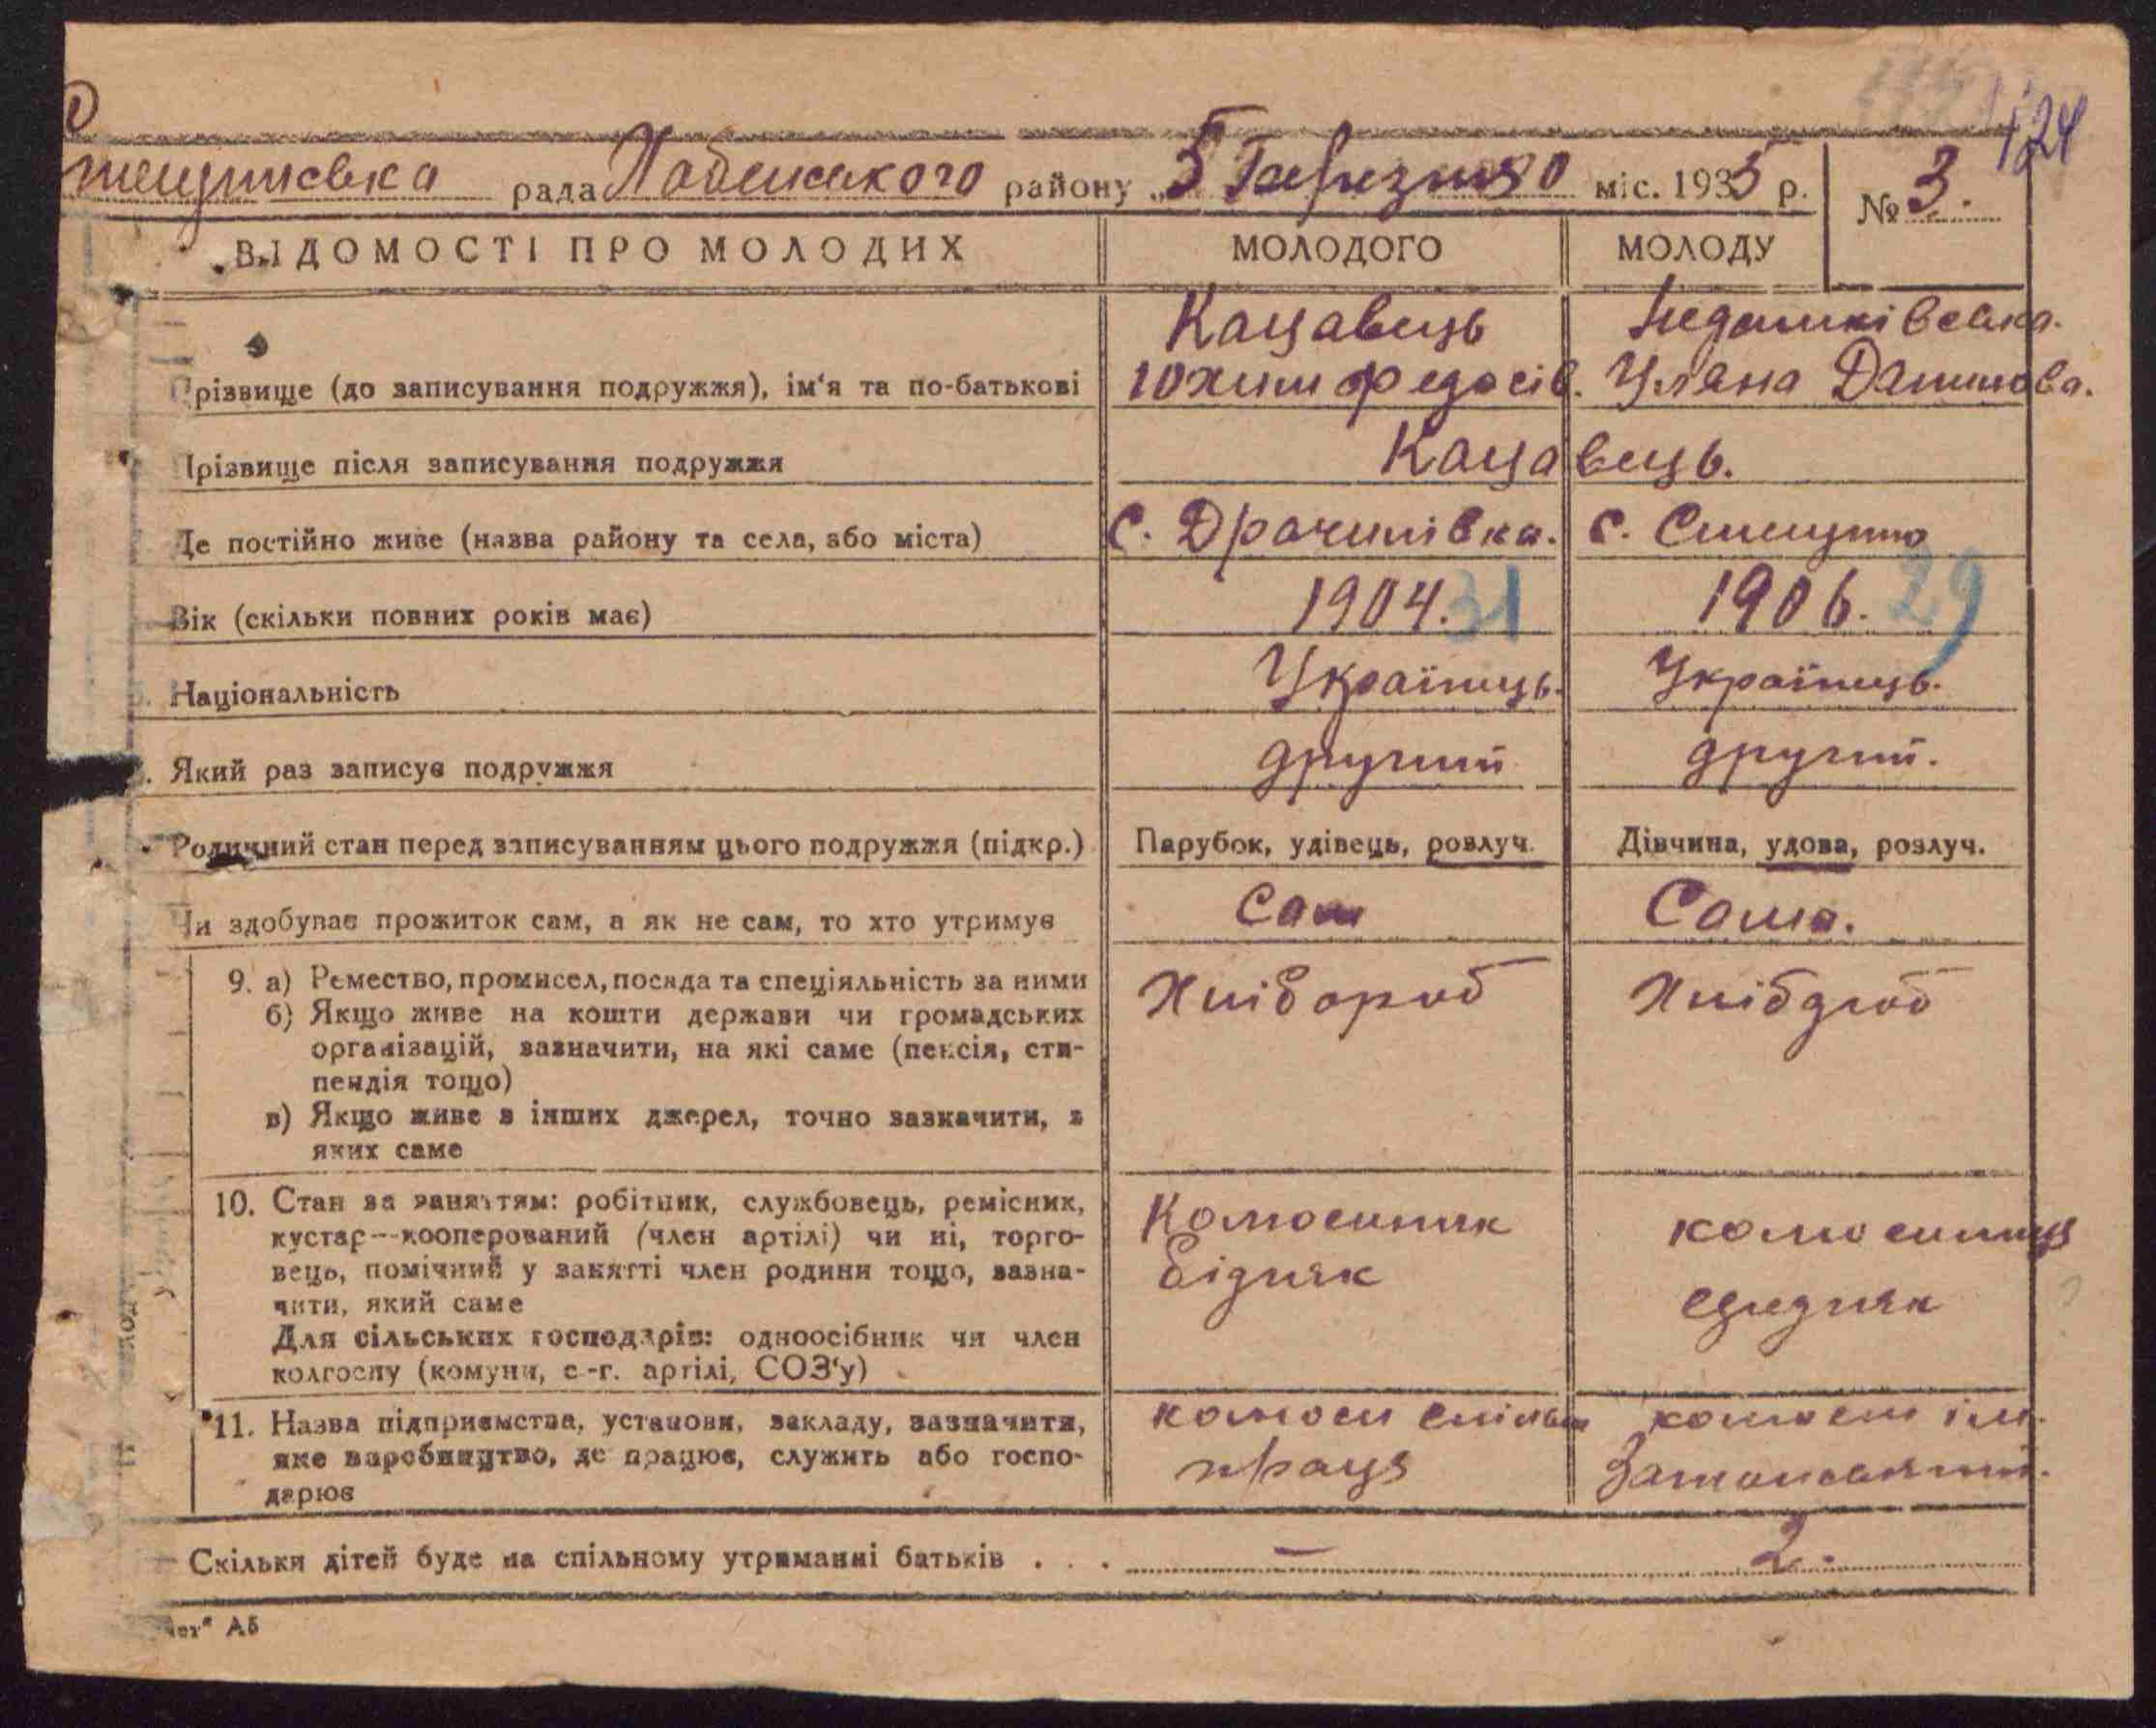 124
рада району „5 Березня міс. 1935 р. № 3.
ВІДОМОСТІ ПРО МОЛОДИХ МОЛОДОГО МОЛОДУ
Кацавець
різвище (до записування подружжя), ім'я та по-батькові Юхим Федосів. Уляна Данилова.
різвище після записування подружжя Кацавець.
Де постійно живе (назва району та села, або міста) С. Драчинівка. с.
Вік (скільки повних років має) 1904. 31 1906. 29
Національність Українець. Українець.
Який раз записує подружжя другий другий.
Родинний стан перед записуванням цього подружжя (підкр.) Парубок, удівець, розлуч. Дівчина, удова, розлуч.
Чи здобуває прожиток сам, а як не сам, то хто утримує Сам Сама.
9. а) Ремество, промисел, посада та спеціяльність за ними Хлібороб Хлібороб
б) Якщо живе на кошти держави чи громадських
організацій, зазначити, на які саме (пенсія, сти-
пендія тощо)
в) Якщо живе з інших джерел, точно зазначити, з
яких саме
10. Стан за заняттям: робітник, службовець, ремісник, Колгоспник колгоспниця
кустар--кооперований (член артілі) чи ні, торго-
вець, помічний у занятті член родини тощо, зазна- бідняк
чити, який саме середняк
Для сільських господарів: одноосібник чи член
колгоспу (комуни, с.-г. артілі, СОЗ'у)
11. Назва підприємства, установи, закладу, зазначити, колгосп спільна колгосп ім.
яке виробництво, де працює, служить або госпо- праця
дарює
Скільки дітей буде на спільному утриманні батьків . . . — 2.
А5